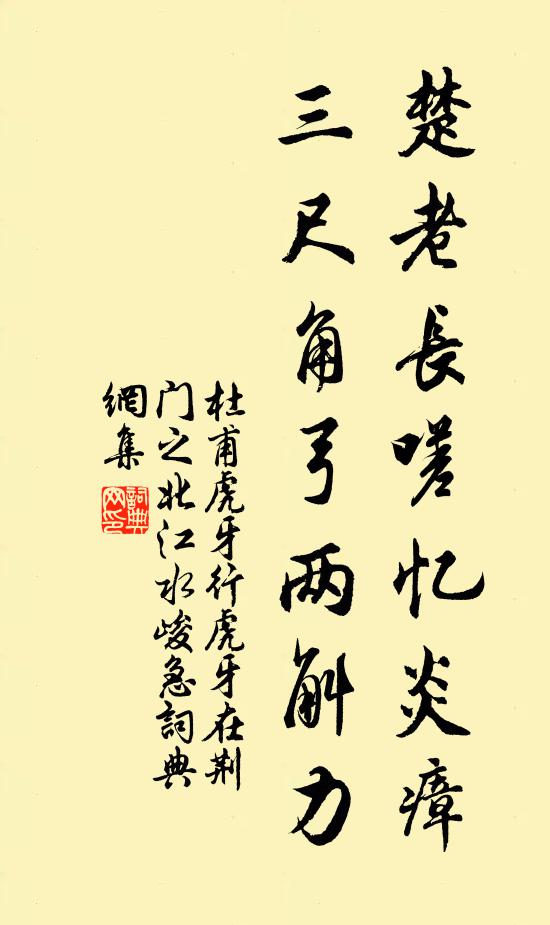 楚老長嗟忆炎瘴
三尺角弓两斛力
杜甫虎牙行虎牙在荆
门之北江水峻急詞典
網集
詞典
网印